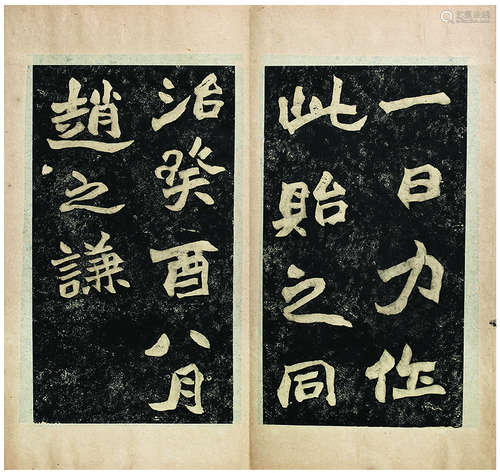 一日力作
此貽之同
治癸酉八月
趙之謙